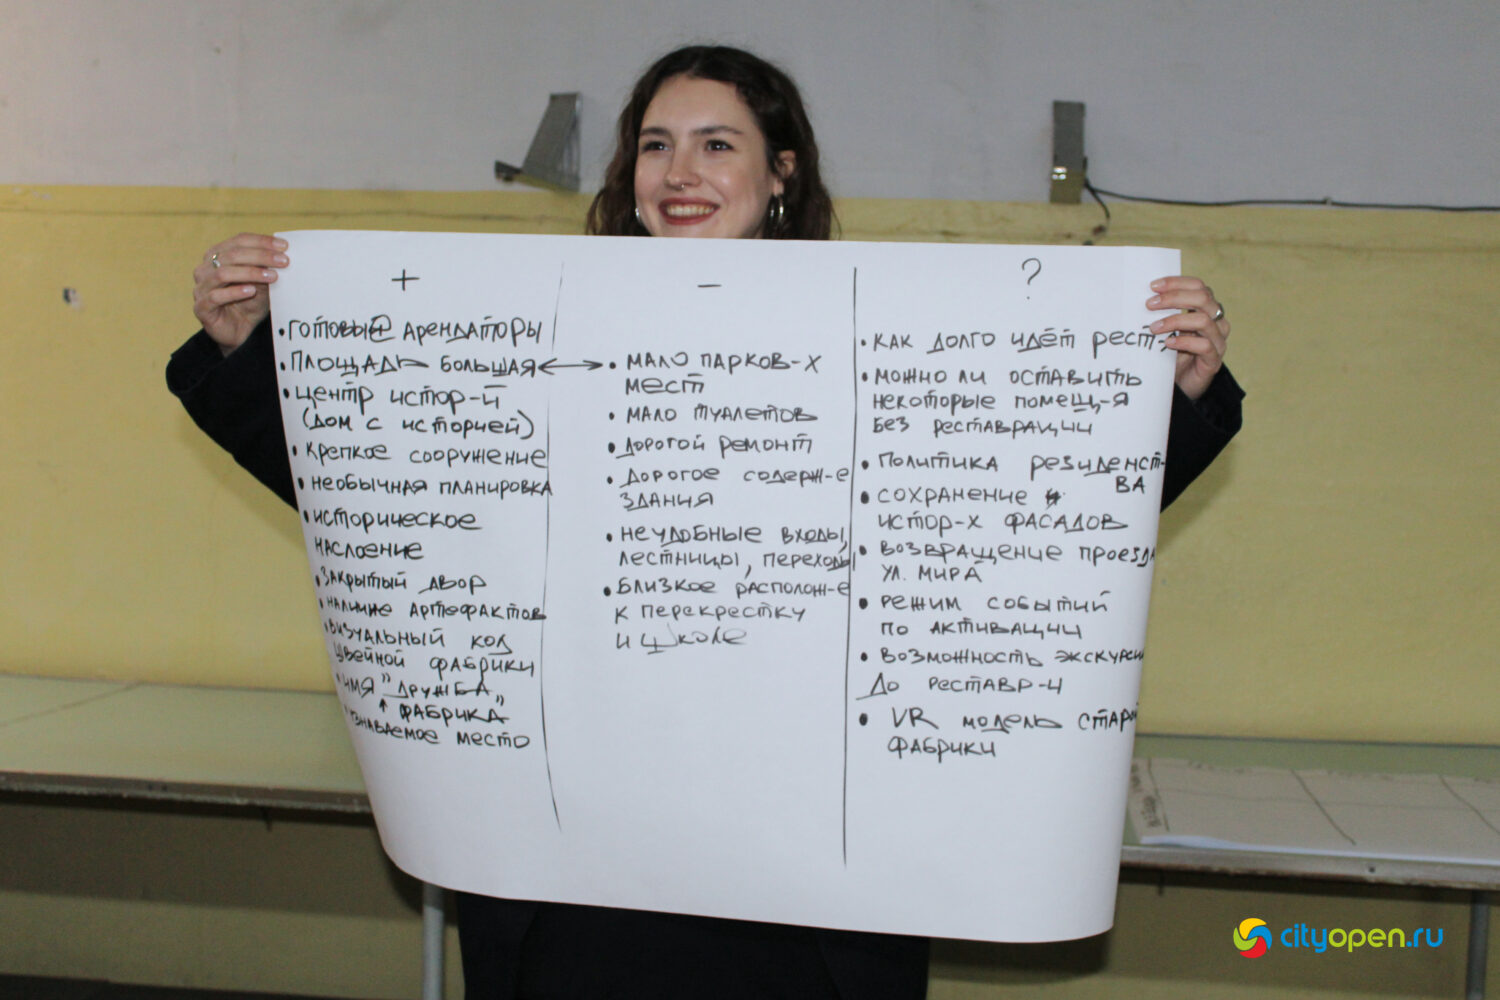 +
• ГОТОВЫЕ АРЕНДАТОРЫ
• ПЛОЩАДЬ БОЛЬШАЯ
• ЦЕНТР ИСТОР-Й
(ДОМ С ИСТОРИЕЙ)
• КРЕПКОЕ СООРУЖЕНИЕ
• НЕОБЫЧНАЯ ПЛАНИРОВКА
• ИСТОРИЧЕСКОЕ
НАСЛОЕНИЕ
• ЗАКРЫТЫЙ ДВОР
• НАЛИЧИЕ АРТЕФАКТОВ
• ВИЗУАЛЬНЫЙ КОД
ШВЕЙНОЙ ФАБРИКИ
• ИМЯ "ДРУЖБА"
↑ ФАБРИКА
• УЗНАВАЕМОЕ МЕСТО
–
• МАЛО ПАРКОВ-Х
МЕСТ
• МАЛО ТУАЛЕТОВ
• ДОРОГОЙ РЕМОНТ
• ДОРОГОЕ СОДЕРЖ-Е
ЗДАНИЯ
• НЕУДОБНЫЕ ВХОДЫ,
ЛЕСТНИЦЫ, ПЕРЕХОДЫ
• БЛИЗКОЕ РАСПОЛОЖ-Е
К ПЕРЕКРЕСТКУ
И ШКОЛЕ
?
• КАК ДОЛГО ИДЁТ РЕСТ-
• МОЖНО ЛИ ОСТАВИТЬ
НЕКОТОРЫЕ ПОМЕЩ-Я
БЕЗ РЕСТАВРАЦИИ
• ПОЛИТИКА РЕЗИДЕНСТ-
ВА
• СОХРАНЕНИЕ
ИСТОР-Х ФАСАДОВ
• ВОЗВРАЩЕНИЕ ПРОЕЗДА
УЛ. МИРА
• РЕЖИМ СОБЫТИЙ
ПО АКТИВАЦИИ
• ВОЗМОЖНОСТЬ ЭКСКУРСИ
ДО РЕСТАВР-И
• VR МОДЕЛЬ СТАРОЙ
ФАБРИКИ
cityopen.ru